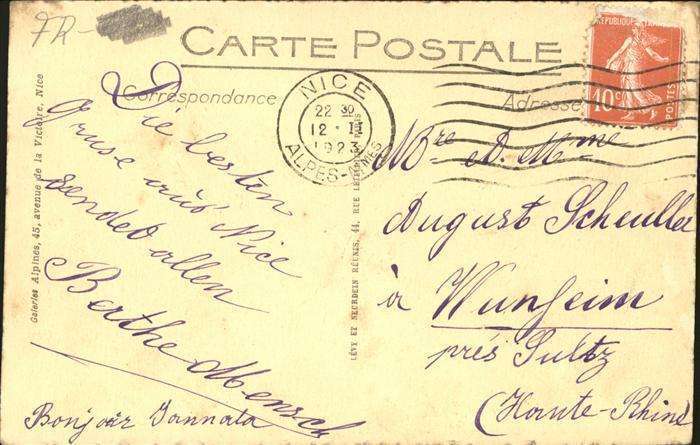 FR-
CARTE POSTALE
Correspondance
Adresse
REPUBLIQUE
10c
POSTES
NICE
22 30
12 · II
1923
ALPES-MMES
Galeries Alpines, 45, avenue de la Victoire, Nice
LÉVY ET NEURDEIN RÉUNIS, 44, RUE LETELLIER, PARIS
Die besten
Gruse aus Nice
sendet allen
Berthe Mensch
Bonjour
Mre & Mme
August Scheuller
à Wunheim
près Sultz
(Haute-Rhin)